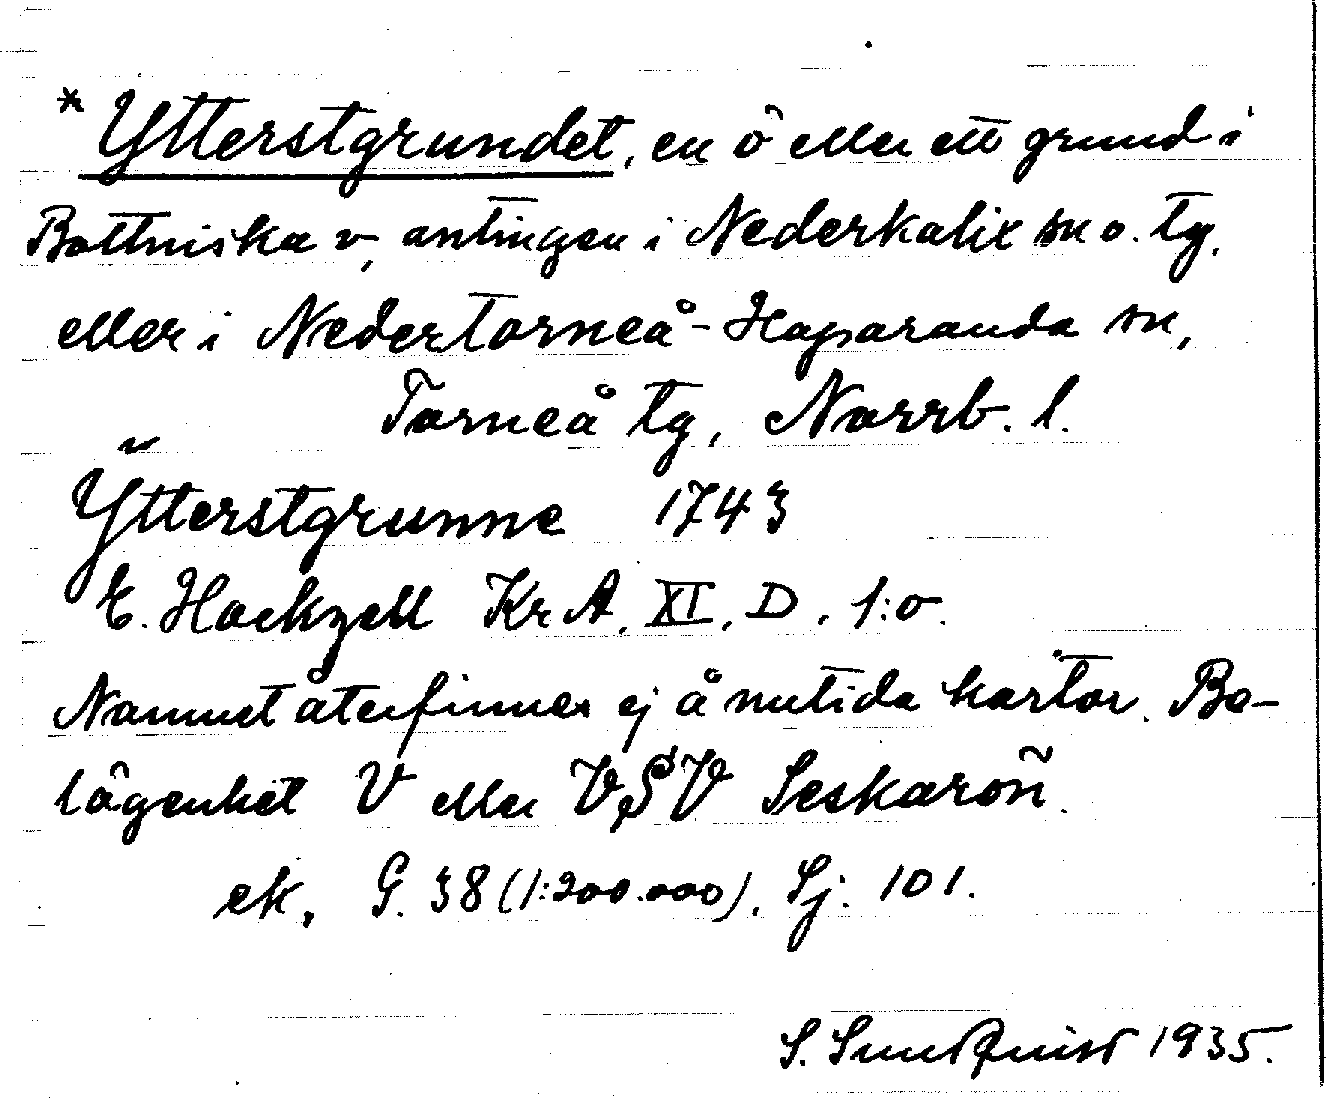 * Ytterstgrundet, en ö eller ett grund i
Bottniska v, antingen i Nederkalix sn o. tg.
eller i Nedertorneå-Haparanda sn,
Torneå tg, Norrb. l.
Ÿtterstgrunne 1743
E. Hackzell KrA. XI. D. 1:o.
Namnet återfinnes ej å nutida kartor. Be-
lägenhet V eller VSV Seskaröñ.
ek. G. 38 (1:200.000). Sj. 101.
S. Sundquist 1935.